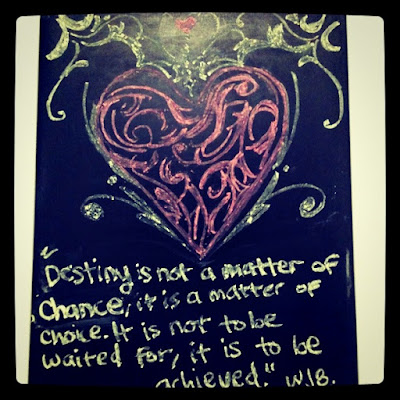 "Destiny is not a matter of
chance, it is a matter of
choice. It is not to be
waited for, it is to be
achieved." W.J.B.